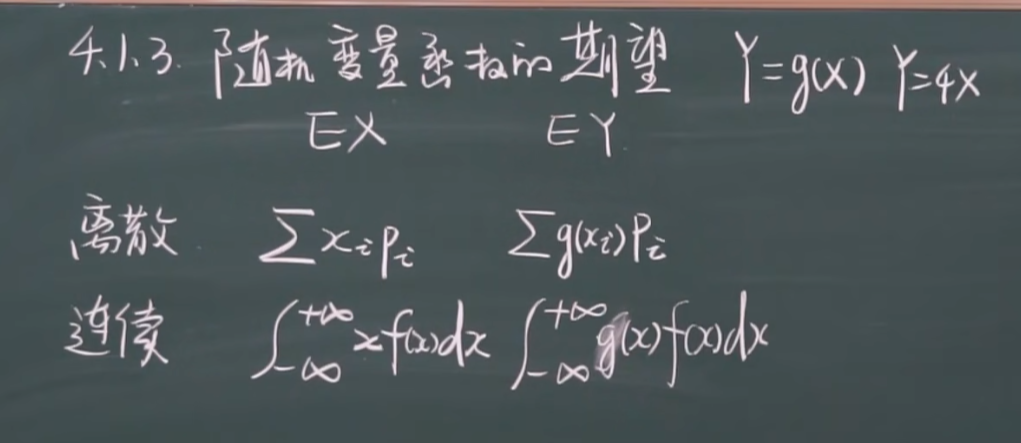 4.1.3. 随机变量函数的期望 Y=g(X) Y=4X
EX EY
离散 ∑xᵢpᵢ ∑g(xᵢ)Pᵢ
连续 ∫_{-∞}^{+∞}xf(x)dx ∫_{-∞}^{+∞}g(x)f(x)dx